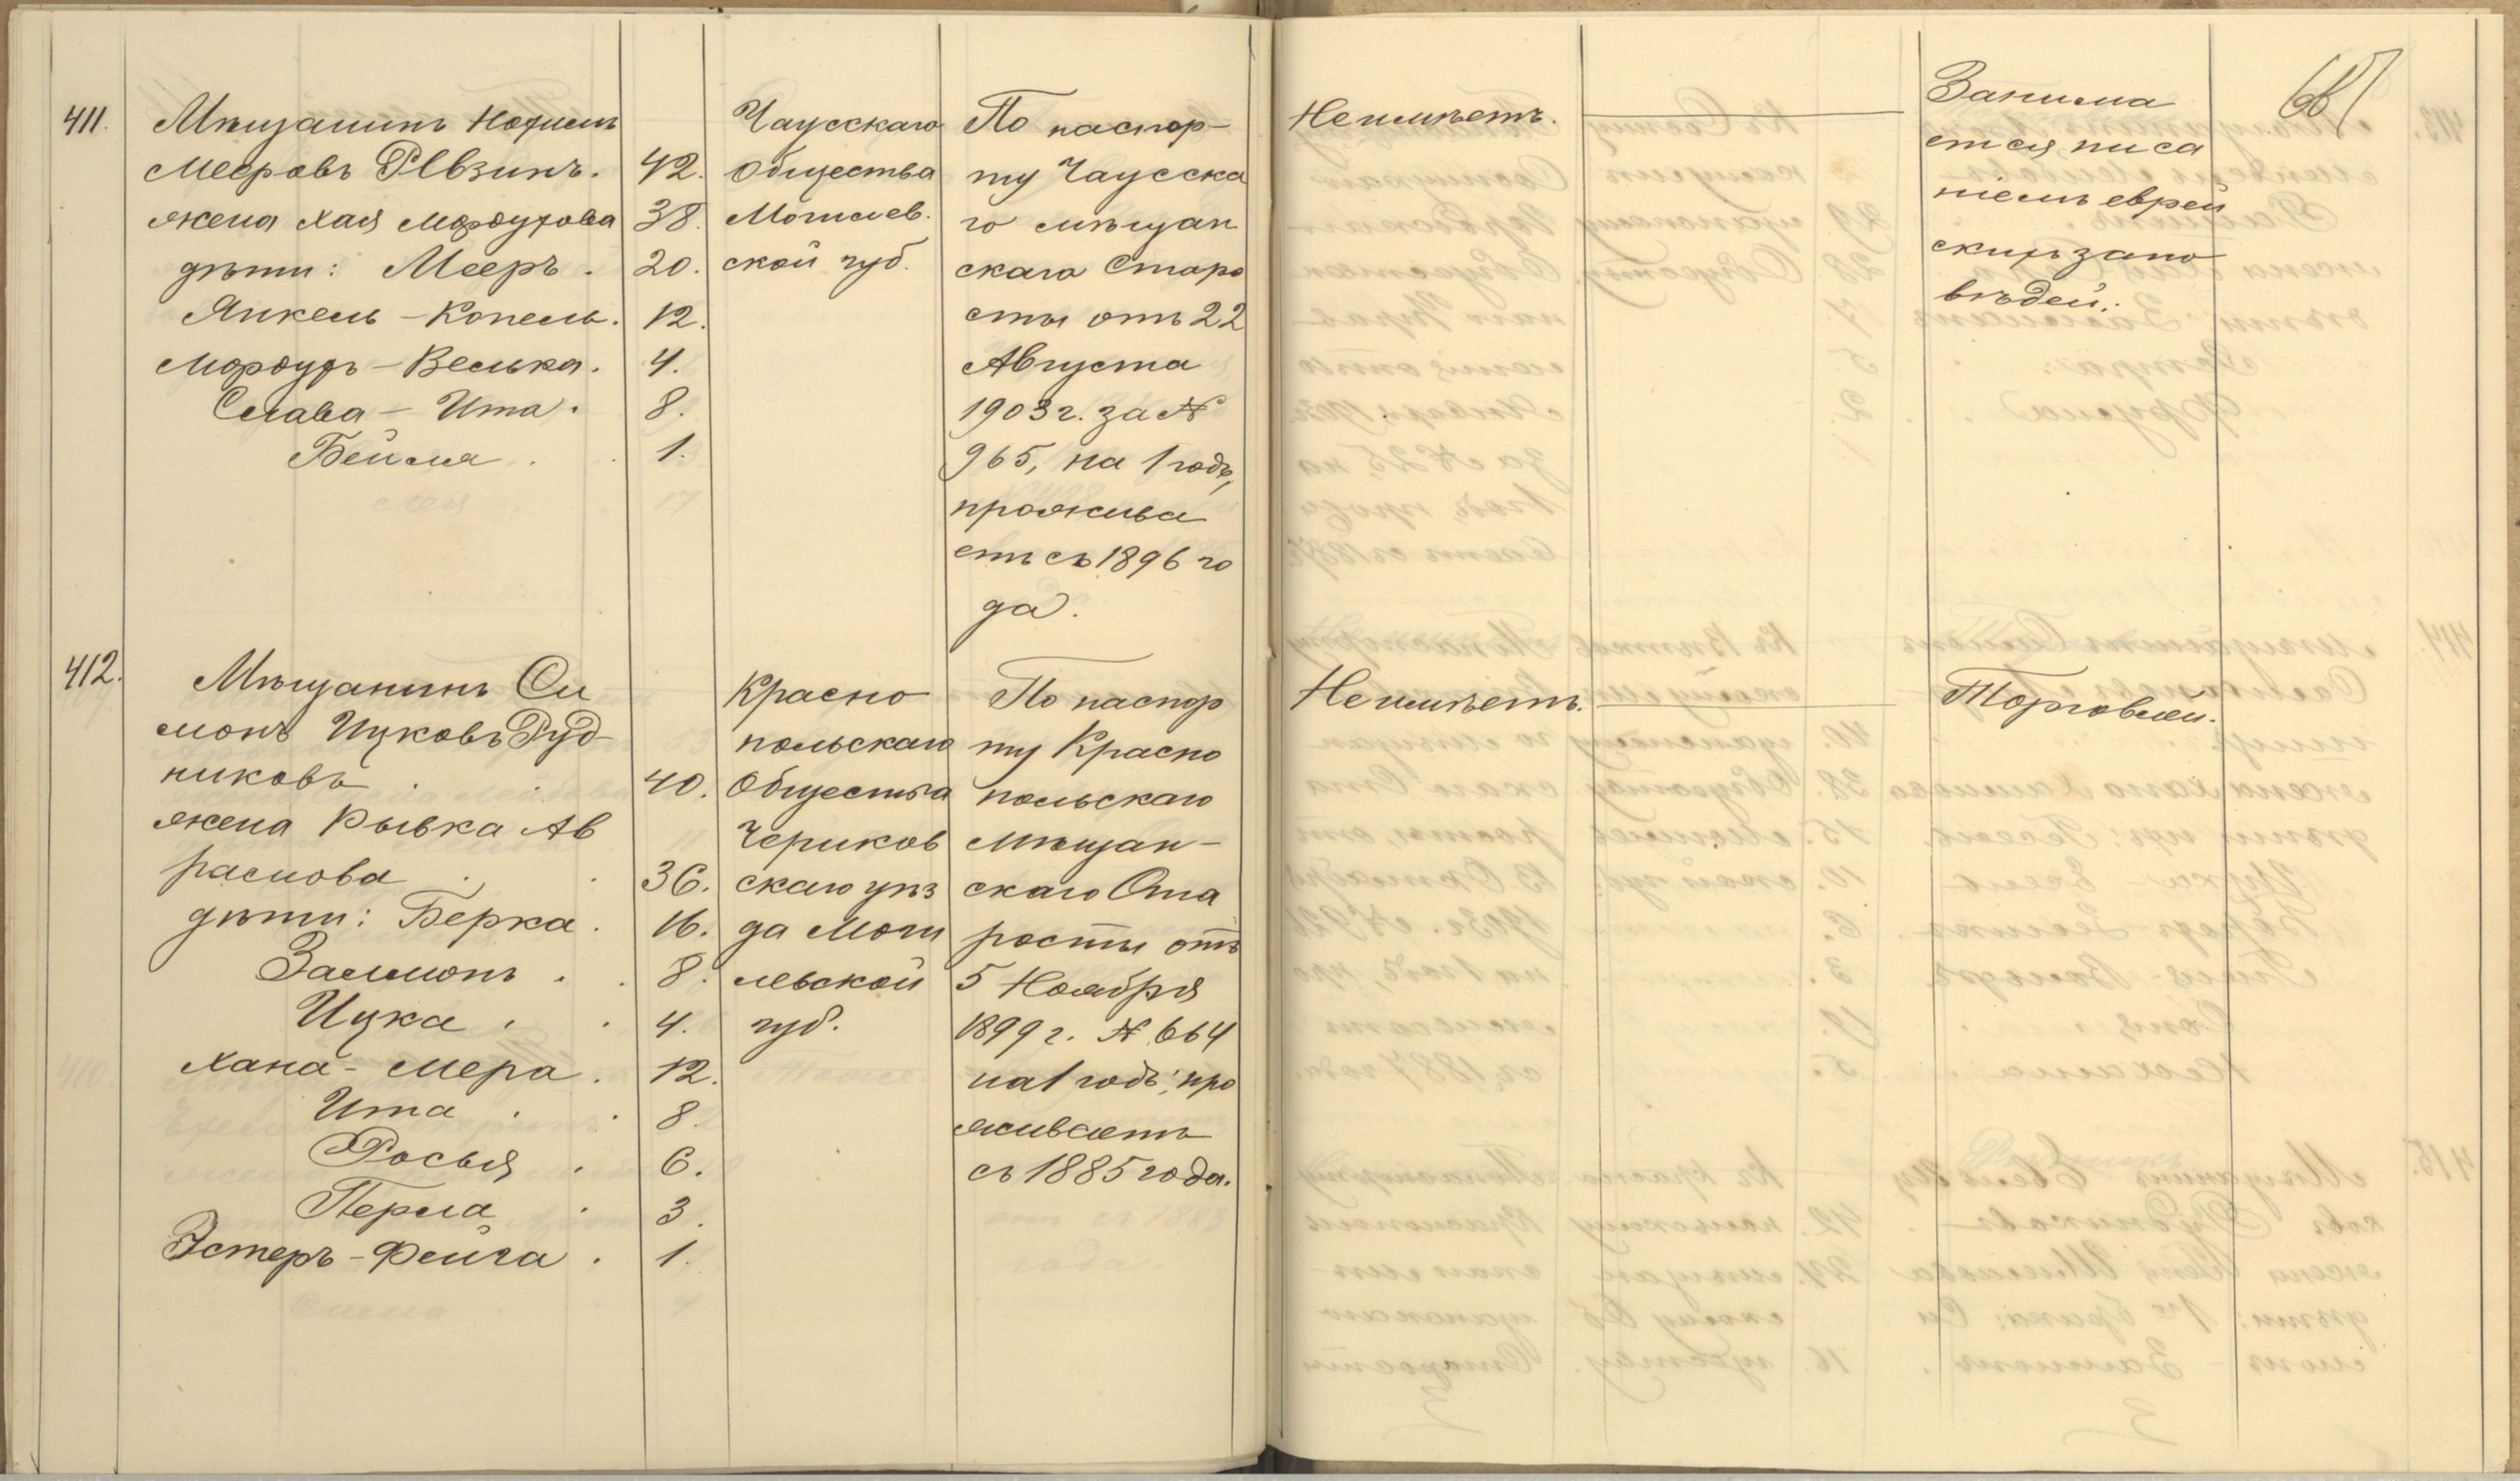 411.
Мѣщанинъ Нохимъ
Мееровъ Рѣвзинъ. 42.
жена Хая Мордухова 38.
дѣти: Мееръ. 20.
Янкель-Копель. 12.
Мордухъ-Велька. 4.
Слава-Ита. 8.
Бейля. 1.
Чаусскаго
Общества
Могилев.
ской губ.
По паспор-
ту Чаусска
го мѣщан
скаго Старо
сты отъ 22
Августа
1903 г. за №
965, на 1 годъ,
прожива
етъ съ 1896 го
да.
Не имѣетъ.
Занима
ется писа
ніемъ еврей
скихъ запо
вѣдей.
412.
Мѣщанинъ Си
монъ Ицковъ Руд-
никовъ 40.
жена Рывка Аб
рамова 36.
дѣти: Берка. 16.
Залмонъ. 8.
Ицка. 4.
Хана-Мера. 12.
Ита. 8.
Росья. 6.
Перла. 3.
Эстеръ-Фейга. 1.
Красно
польскаго
Общества
Чериков
скаго уѣз
да Моги
левской
губ.
По паспор
ту Красно
польскаго
мѣщан-
скаго Ста
росты отъ
5 Ноября
1899 г. № 664
на 1 годъ; про
живаетъ
съ 1885 года.
Не имѣетъ.
Торговлей.